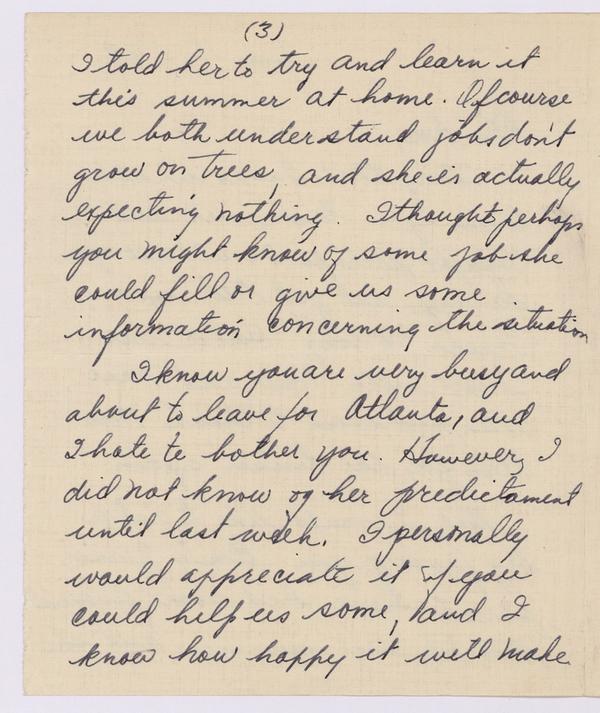 (3)
I told her to try and learn it
this summer at home. Of course
we both understand jobs don't
grow on trees, and she is actually
expecting nothing. I thought perhaps
you might know of some job she
could fill or give us some
information concerning the situation
I know you are very busy and
about to leave for Atlanta, and
I hate to bother you. However, I
did not know of her predictament
until last week. I personally
would appreciate it if you
could help us some, and I
know how happy it will make